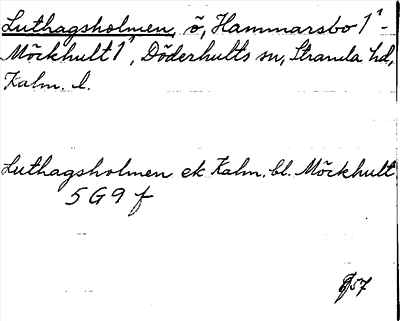 Luthagsholmen, ö, Hammarsbo 1¹ -
Möckhult 1¹, Döderhults sn, Stranda hd,
Kalm. l.
Luthagsholmen ek. Kalm. bl. Möckhult
5 G 9 f
57